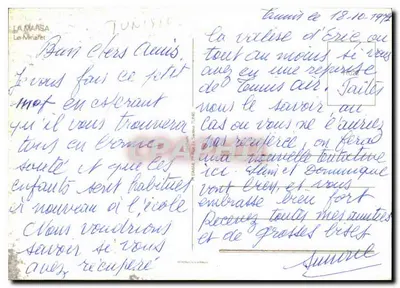 LA MARSA
Le Minaret
TUNISIE
Tunis le 18.10.1972
Bien chers Amis.
Je vous fais ce petit
mot en espérant
qu'il vous trouvera
tous en bonne
santé et que les
enfants sont habitués
à nouveau à l'école
Nous voudrions
savoir si vous
avez récupéré
la valise d'Eric, ou
tout au moins si vous
avez eu une réponse
de Tunis Air. Faites
nous le savoir au
cas où vous ne l'auriez
pas on fera
une nouvelle tentative
ici. et Dominique
vont bien, et vous
embrasse bien fort
Recevez toutes mes amitiés
et de grosses bises